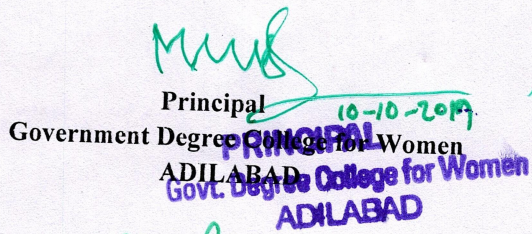 Principal
10-10-2019
Government Degree College for Women
ADILABAD
PRINCIPAL
Govt. Degree College for Women
ADILABAD